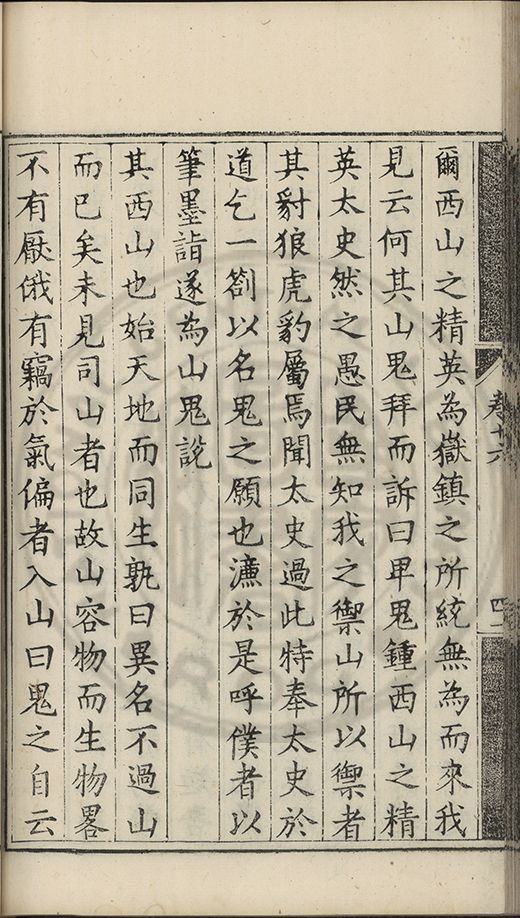 卷十六
四一
爾西山之精英為嶽鎮之所統無為而來我
見云何其山鬼拜而訴曰卑鬼鍾西山之精
英太史然之愚民無知我之禦山所以禦者
其豺狼虎豹屬焉聞太史過此特奉太史於
道乞一劄以名鬼之願也濂於是呼僕者以
筆墨詣遂為山鬼說
其西山也始天地而同生孰曰異名不過山
而已矣未見司山者也故山容物而生物畧
不有厭俄有竊於氣偏者入山曰鬼之自云